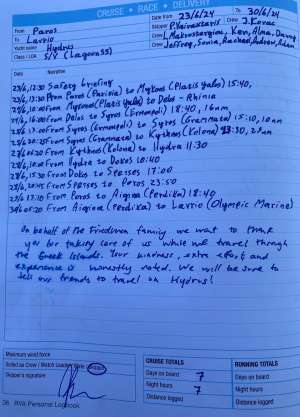 CRUISE • RACE • DELIVERY
From Paros
To Lavrio
Yacht name Hydrus
Class / LOA S/Y (Lagoon55)
Date from 23/6/24 To 30/6/24
Skipper P. Kainextaris Crew J. Kovac
Crew I. Makrostergiou, Ken, Alma, Danny
Crew Jeffrey, Sonia, Rachael, Andrew, Adam
Date Narrative
23/6, 12:30 Safety briefing
23/6, 13:30 from Paros (Paroikia) to Mykonos (Platis Yalos) 15:40,
24/6, 10:00 from Mykonos (Platis Yalos) to Delo - Rhinia
24/6, 16:00 from Delos to Syros (Ermoupoli) 18:40, 16nm
25/6, 13:00 from Syros (Ermoupoli) to Syros (Grammata) 15:10, 10nm
25/6, 20:25 from Syros (Grammata) to Kythnos (Kolona) 23:30, 22nm
27/6 05:20 from Kythnos (Kolona) to Hydra 11:30
28/6, 10:00 from Hydra to Dokos 10:40
28/6, 15:30 from Dokos to Spetses 17:00
28/6, 20:45 from Spetses to Poros 23:50
29/6 17:10 From Poros to Aigina (Perdika) 18:40
30/6 05:20 From Aigina (Perdika) to Lavrio (Olympic Marine)
On behalf of the Friedman family we want to thank
you for taking care of us while we travel through
the Greek Islands. Your kindness, extra effort, and
experience is honestly noted. We will be sure to
tell our friends to travel on Hydrus!
Maximum wind force
Sailed as Crew / Watch Leader / Mate / Skipper
Skipper's signature
CRUISE TOTALS
Days on board 7
Night hours 7
Distance logged
RUNNING TOTALS
Days on board
Night hours
Distance logged
36 RYA Personal Logbook